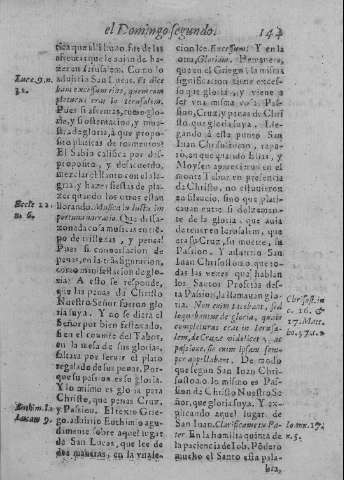 el Domingo segundo. 144
tica que alli huuo fue de las
afrentas que le auian de ha-
zer en Ierusalem. Como lo
aduirtio San Lucas. Et dice
bant excessum eius, quem com
pleturus erat in Ierusalem.
Pues si afrentas, como glo-
ria, y si ostentacion, y mues-
tra de gloria, à que propo-
sito platicas de tormentos?
El Sabio califica por des-
proposito, y desacuerdo,
mezclar el llanto con el ale-
gria, y hazer fiestas de pla-
zer quando los otros estan
llorando. Musica in luctu im-
portuna narratio.
de tristezas, y penas?
Pues si conuersacion de
penas, en la transfiguracion,
como es manifestacion de glo-
ria? A esto se responde,
que las penas de Christo
Nuestro Señor fueron glo-
ria suya. Y no se diera el
Señor por bien festejado,
en el combite del Tabor,
en la mesa de sus glorias,
faltara por seruir el plato
regalado de sus penas. Por-
que su passion es su gloria.
Y lo mismo es gloria para
Christo, que penas, Cruz,
y Passion. El texto Grie-
go, aduirtio Euthimio agu-
damente sobre aquel lugar
de San Lucas, que lee de
dos maneras, en la vna
Luce. 9. n.
31.
Eccle 22.
n. 6.
Euthim. in
Lucam 9.
cion lee. Excessum. Y en la
otra, Gloriam. De manera,
que en el Griego la misma
significacion tiene excesso
que gloria, y viene a
ser vna misma cosa, Pas-
sion, Cruz, y penas de Chris
to, que gloria suya. Lle-
gando à este punto San
Iuan Chrisostomo, repa-
ro, en que quando Elias, y
Moysen aparecieron en el
monte Tabor en presencia
de Christo, no estuuieron
en silencio, sino que plati-
cauan entre si dulzemen-
te de la gloria, que auia
de tener en Ierusalem, que
era su Cruz, su muerte, su
Passion. Y aduirtio San
Iuan Chrisostomo, que to-
das las vezes que hablan
los Santos Profetas des-
ta Passion, la llaman glo-
ria. Non enim tacebant, sed
loquebantur de gloria, quam
completurus erat in Ierusa-
lem, de Cruce videlicet, ac
passione, sic enim ipsam sem-
per appellabant. De modo
que segun San Iuan Chri-
sostomo lo mismo es Pas-
sion de Christo Nuestro Se-
ñor, que gloria suya. Y ex-
plicando aquel lugar de
San Iuan. Clarifica me tu Pa-
ter. En la homilia quinta de
la paciencia de Iob. Ponderò
mucho el Santo esta pala-
bra,
Chrisost. in
c. 16. &
17. Matt.
Ioann. 17.
n. 5.